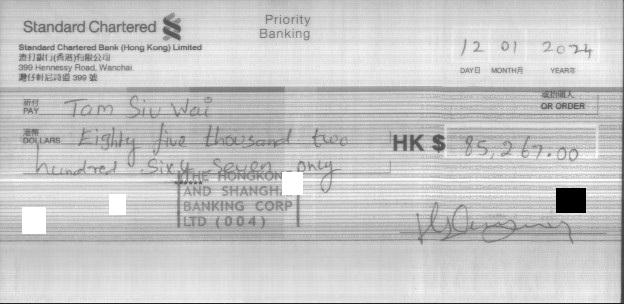 Standard Chartered
Priority
Banking
Standard Chartered Bank (Hong Kong) Limited
渣打銀行(香港)有限公司
399 Hennessy Road, Wanchai
灣仔軒尼詩道 399 號
12 01 2024
DAY日 MONTH月 YEAR年
祈付
PAY Tam Siu Wai
或指徊人
OR ORDER
港幣
DOLLARS Eighty five thousand two
hundred Sixty Seven only
HK $ 85,267.00
THE HONGKON
AND SHANGHA
BANKING CORP
LTD (004)